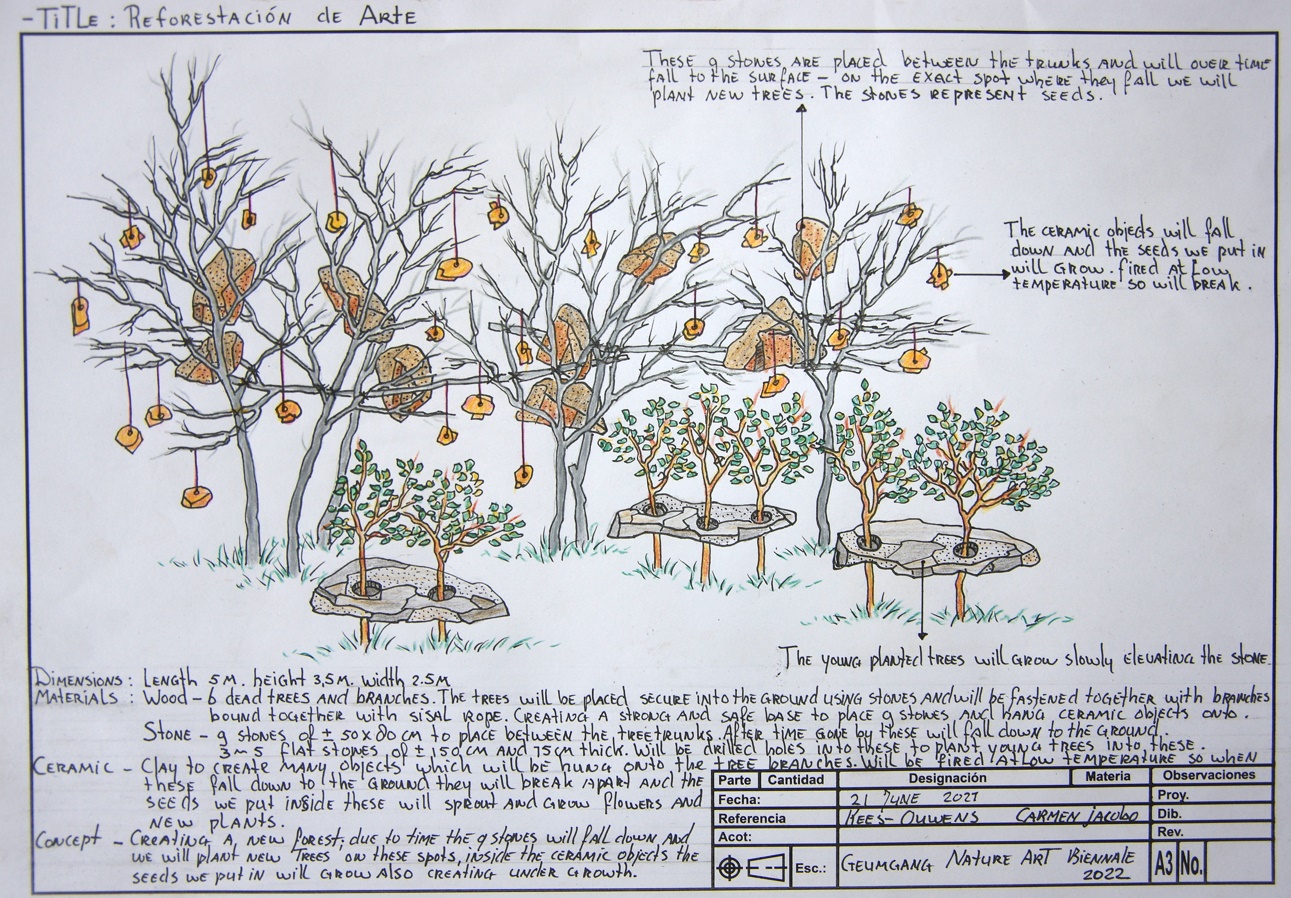 -TITLE: REFORESTACIÓN DE ARTE
THESE 9 STONES ARE PLACED BETWEEN THE TRUNKS AND WILL OVER TIME
FALL TO THE SURFACE - ON THE EXACT SPOT WHERE THEY FALL WE WILL
PLANT NEW TREES. THE STONES REPRESENT SEEDS.
THE CERAMIC OBJECTS WILL FALL
DOWN AND THE SEEDS WE PUT IN
WILL GROW. FIRED AT LOW
TEMPERATURE SO WILL BREAK.
THE YOUNG PLANTED TREES WILL GROW SLOWLY ELEVATING THE STONE.
DIMENSIONS: LENGTH 5M. HEIGHT 3,5M. WIDTH 2.5M
MATERIALS: WOOD - 6 DEAD TREES AND BRANCHES. THE TREES WILL BE PLACED SECURE INTO THE GROUND USING STONES AND WILL BE FASTENED TOGETHER WITH BRANCHES
BOUND TOGETHER WITH SISAL ROPE. CREATING A STRONG AND SAFE BASE TO PLACE 9 STONES AND HANG CERAMIC OBJECTS ONTO.
STONE - 9 STONES OF ± 50X80 CM TO PLACE BETWEEN THE TREETRUNKS. AFTER TIME GONE BY THESE WILL FALL DOWN TO THE GROUND.
3~5 FLAT STONES OF ± 150 CM AND 15 CM THICK. WILL BE DRILLED HOLES INTO THESE TO PLANT YOUNG TREES INTO THESE.
CERAMIC - CLAY TO CREATE MANY OBJECTS WHICH WILL BE HUNG ONTO THE TREE BRANCHES. WILL BE FIRED AT LOW TEMPERATURE SO WHEN
THESE FALL DOWN TO THE GROUND THEY WILL BREAK APART AND THE
SEEDS WE PUT INSIDE THESE WILL SPROUT AND GROW FLOWERS AND
NEW PLANTS.
CONCEPT - CREATING A NEW FOREST; DUE TO TIME THE 9 STONES WILL FALL DOWN AND
WE WILL PLANT NEW TREES ON THESE SPOTS, INSIDE THE CERAMIC OBJECTS THE
SEEDS WE PUT IN WILL GROW ALSO CREATING UNDER GROWTH.
Parte Cantidad Designación Materia Observaciones
Fecha: 21 JUNE 2021 Proy.
Referencia KEES-OUWENS CARMEN JACOBO Dib.
Acot: Rev.
Esc.: GEUMGANG NATURE ART BIENNALE
2022 A3 No.